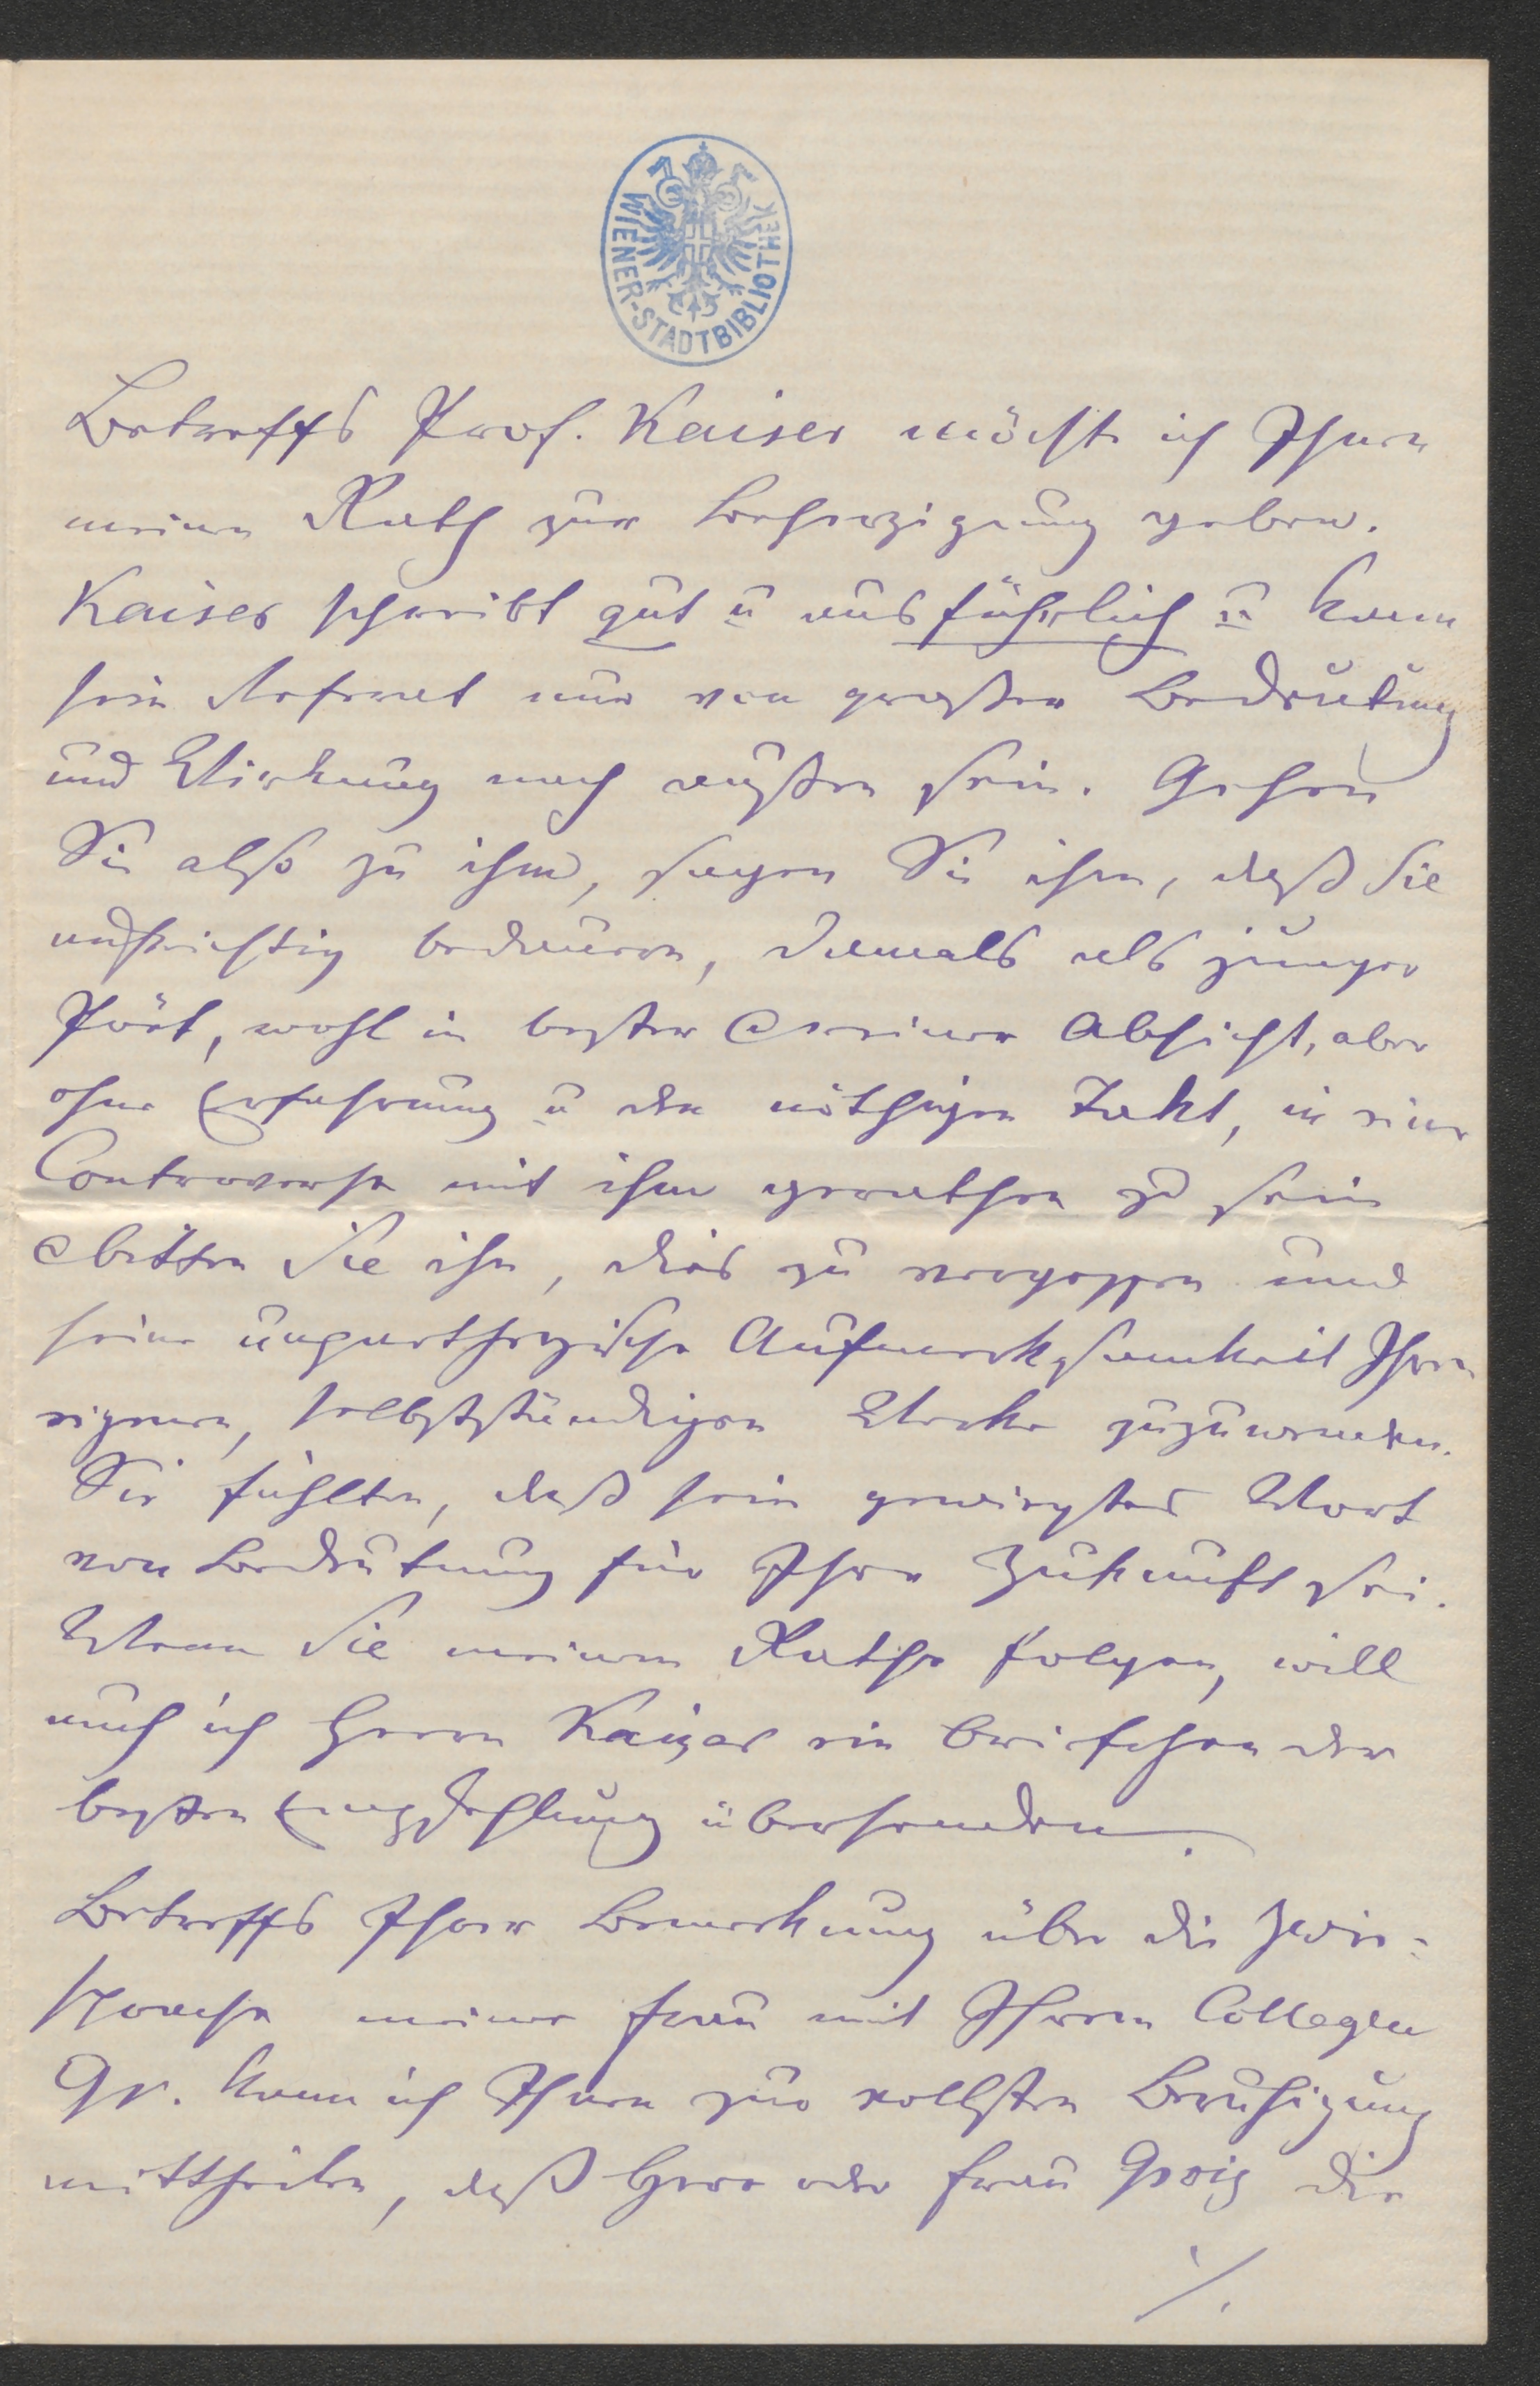 WIENER-STADTBIBLIOTHEK
Betreffs Prof. Kaiser möcht ich Ihnen
meinen Rath zur Beherzigung geben.
Kaiser schreibt gut u ausführlich u kann
sein Referat nur von großer Bedeutung
und Wirkung nach außen sein. Gehen
Sie also zu ihm, sagen Sie ihm, daß Sie
aufrichtig bedauern, damals als junger
Poët, wohl in bester reiner Absicht, aber
ohne Erfahrung u den nöthigen Takt, in einer
Controverse mit ihm gerathen zu sein
bitten Sie ihn, dies zu vergessen und
seine unpartheyische Aufmerksamkeit Ihrem
eigenen, selbstständigen Werke zuzuwenden.
Sie fühlten, daß sein gewiegtes Wort
von Bedeutung für Ihre Zukunft sei.
Wenn Sie meinem Rathe folgen, will
auch ich Herrn Kaiser ein Briefchen der
besten Empfehlung übersenden.
Betreffs Ihrer Bemerkung über die Zwie-
sprache meiner Frau mit Ihrem Collegen
Gr. kann ich Ihnen zur vollsten Beruhigung
mittheilen, daß Herr oder Frau die
./.